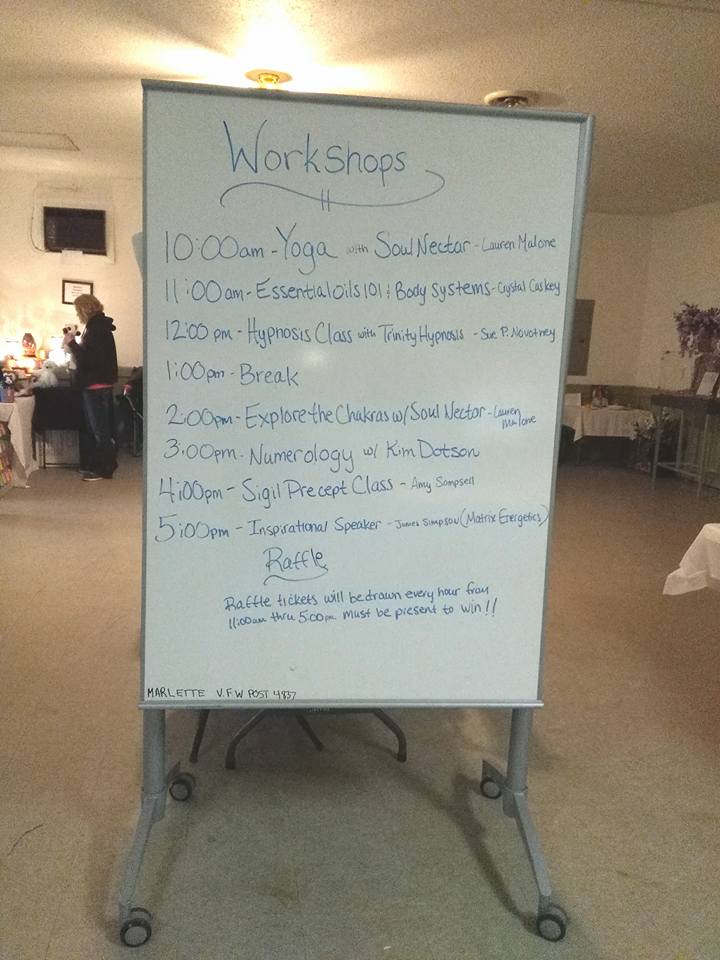 Workshops
10:00am - Yoga with Soul Nectar - Lauren Malone
11:00am - Essential oils 101 & Body Systems - Crystal Caskey
12:00 pm - Hypnosis Class with Trinity Hypnosis - Sue P. Novotney
1:00pm - Break
2:00pm - Explore the Chakras w/ Soul Nectar - Lauren Malone
3:00pm - Numerology w/ Kim Dotson
4:00pm - Sigil Precept Class - Amy Sampsell
5:00pm - Inspirational Speaker - James Simpson (Matrix Energetics)
Raffle
Raffle tickets will be drawn every hour from
11:00am thru 5:00pm must be present to win!!
MARLETTE V.F.W POST 4837